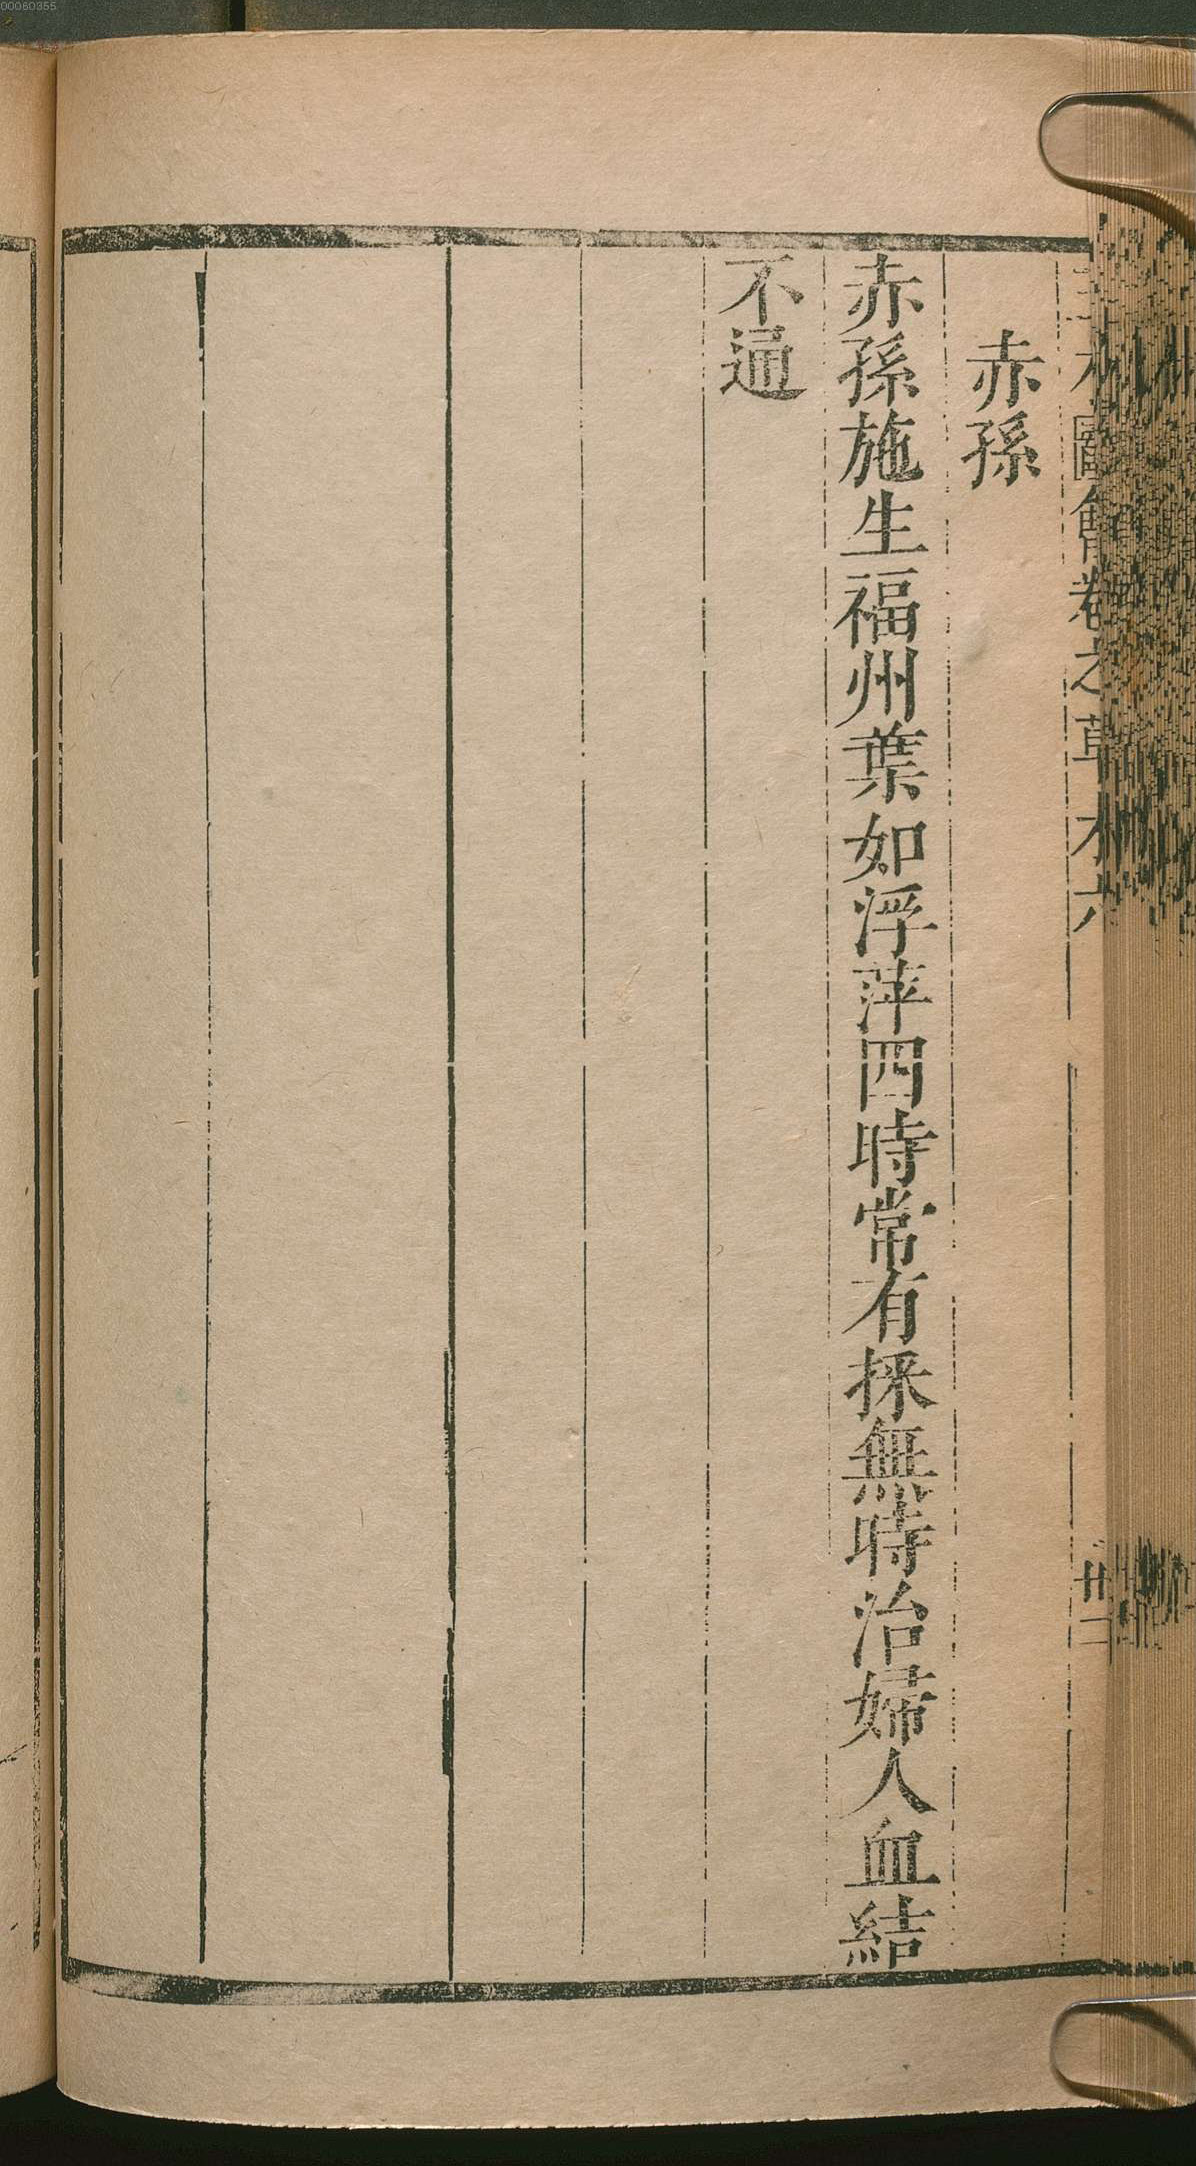 圖會卷之草木六
廿二
赤孫
赤孫施生福州葉如浮萍四時常有採無時治婦人血結
不通
00060355